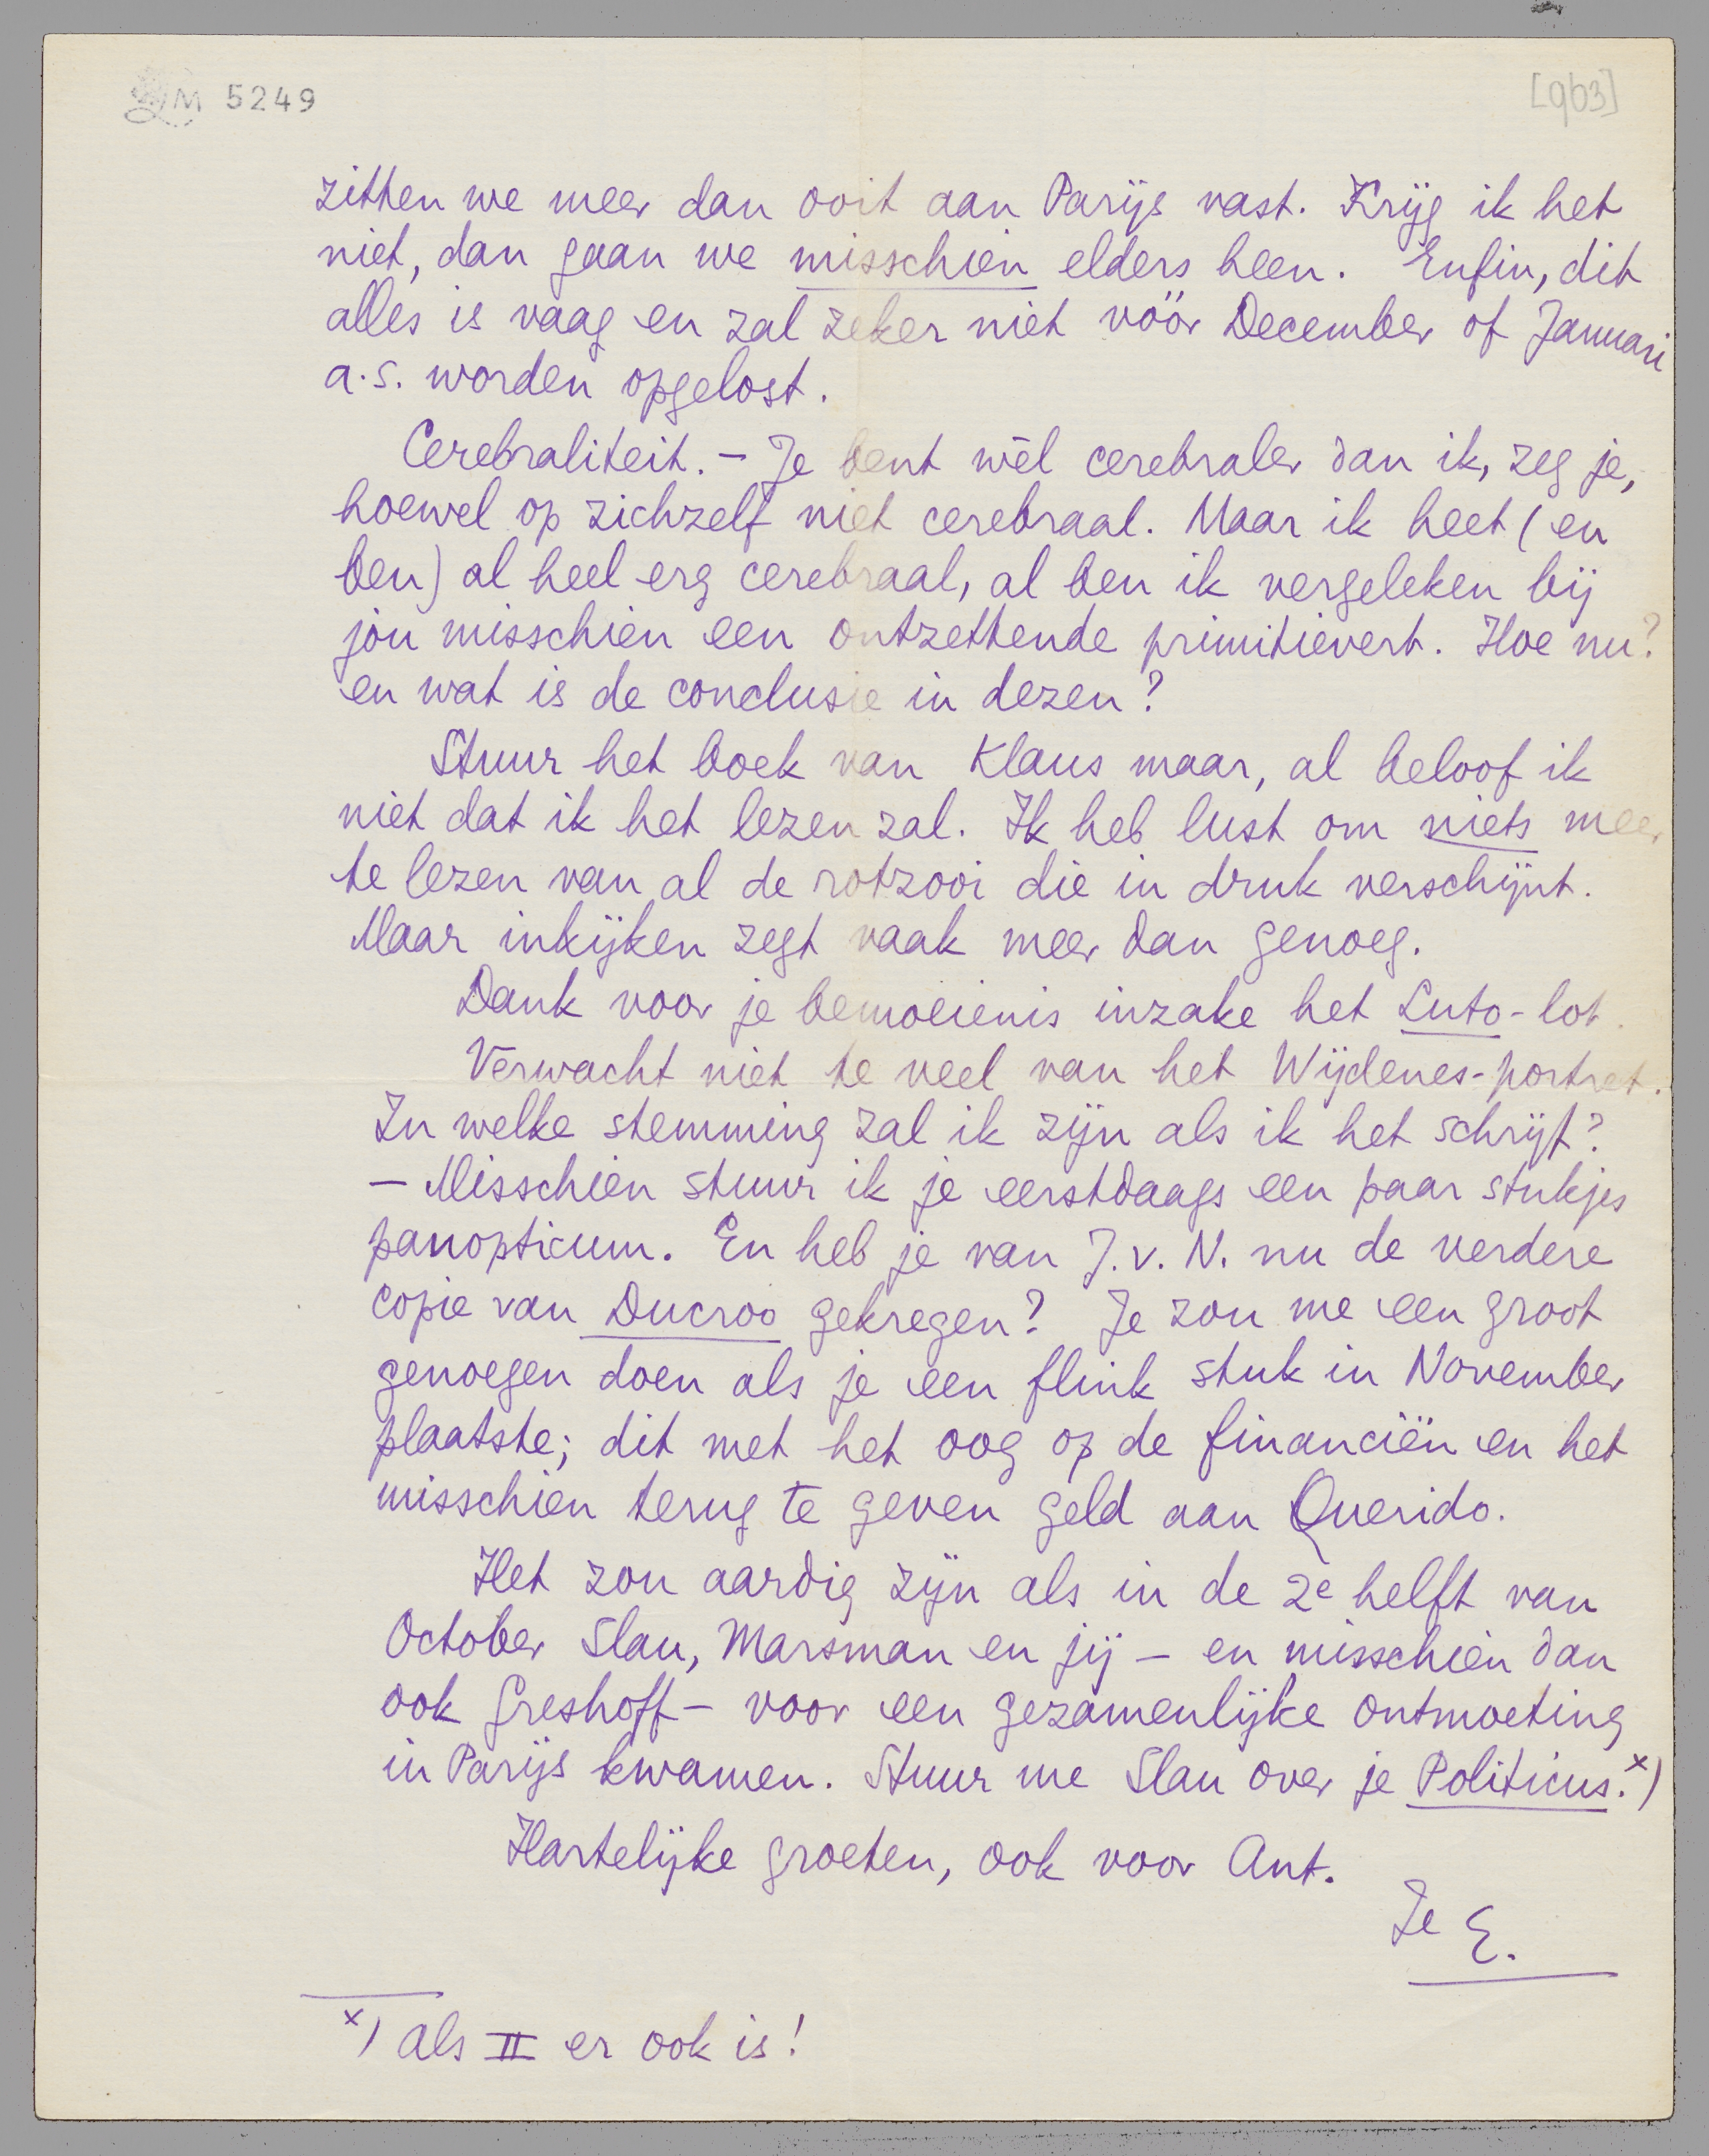 LM 5249
[963]
zitten we meer dan ooit aan Parijs vast. Krijg ik het
niet, dan gaan we misschien elders heen. Enfin, dit
alles is vaag en zal zeker niet vóór December of Januari
a.s. worden opgelost.
Cerebraliteit. – Je bent wèl cerebraler dan ik, zeg je,
hoewel op zichzelf niet cerebraal. Maar ik heet (en
ben) al heel erg cerebraal, al ben ik vergeleken bij
jòu misschien een ontzettende primitievert. Hoe nu?
en wat is de conclusie in dezen?
Stuur het boek van Klaus maar, al beloof ik
niet dat ik het lezen zal. Ik heb lust om niets meer
te lezen van al de rotzooi die in druk verschijnt.
Maar inkijken zegt vaak meer dan genoeg.
Dank voor je bemoeienis inzake het Luto-lot.
Verwacht niet te veel van het Wijdenes-portret.
In welke stemming zal ik zijn als ik het schrijf?
– Misschien stuur ik je eerstdaags een paar stukjes
panopticum. En heb je van J. v. N. nu de verdere
copie van Ducroo gekregen? Je zou me een groot
genoegen doen als je een flink stuk in November
plaatste; dit met het oog op de financiën en het
misschien terug te geven geld aan Querido.
Het zou aardig zijn als in de 2e helft van
October Slau, Marsman en jij – en misschien dan
ook Greshoff – voor een gezamenlijke ontmoeting
in Parijs kwamen. Stuur me Slau over je Politicus. x)
Hartelijke groeten, ook voor Ant.
Je E.
x) als II er ook is!